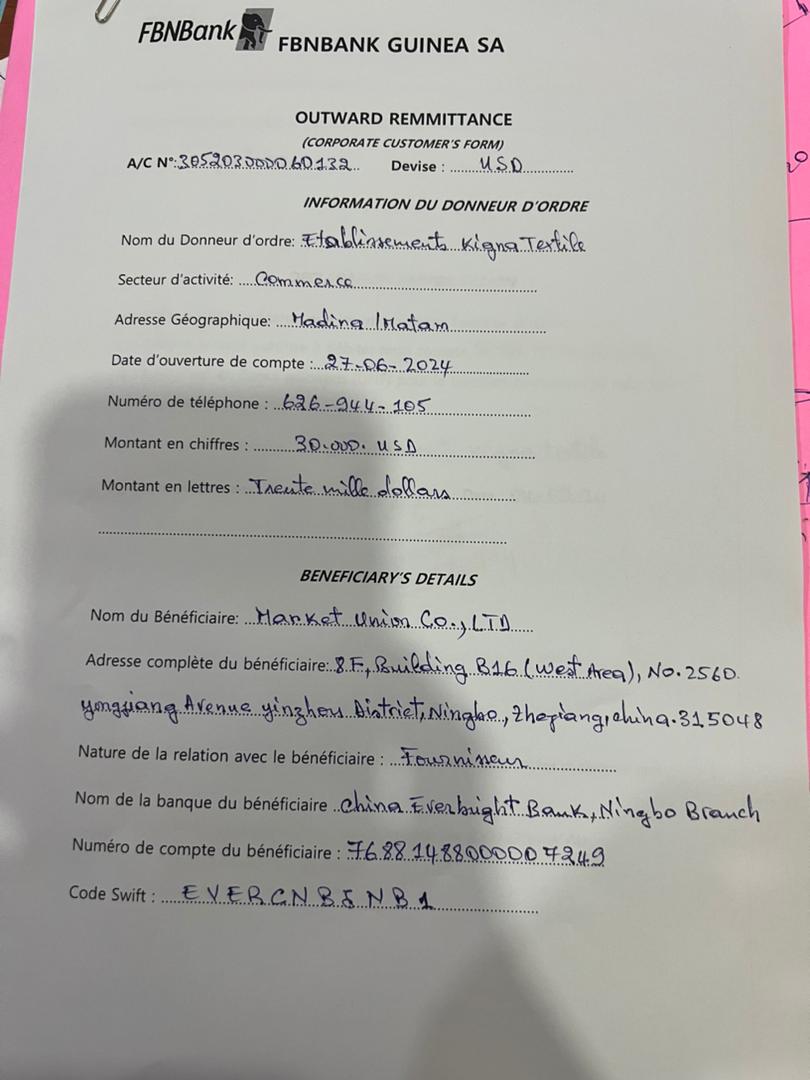 FBNBank
FBNBANK GUINEA SA
OUTWARD REMMITTANCE
(CORPORATE CUSTOMER'S FORM)
A/C N°:305203000060132 Devise : USD
INFORMATION DU DONNEUR D'ORDRE
Nom du Donneur d'ordre: Etablissements Kigna Textile
Secteur d'activité: Commerce
Adresse Géographique: Madina /Matam
Date d'ouverture de compte : 27-06-2024
Numéro de téléphone : 626-944-105
Montant en chiffres : 30.000. USD
Montant en lettres : Trente mille dollars
BENEFICIARY'S DETAILS
Nom du Bénéficiaire: Market Union Co., LTD
Adresse complète du bénéficiaire: 8.F, Building B16 (West Area), No.2560.
yongjiang Avenue yinzhou District, Ningbo, Zhejiang, china.315048
Nature de la relation avec le bénéficiaire : Fournisseur
Nom de la banque du bénéficiaire china Everbright Bank, Ningbo Branch
Numéro de compte du bénéficiaire : 76881488000007249
Code Swift :